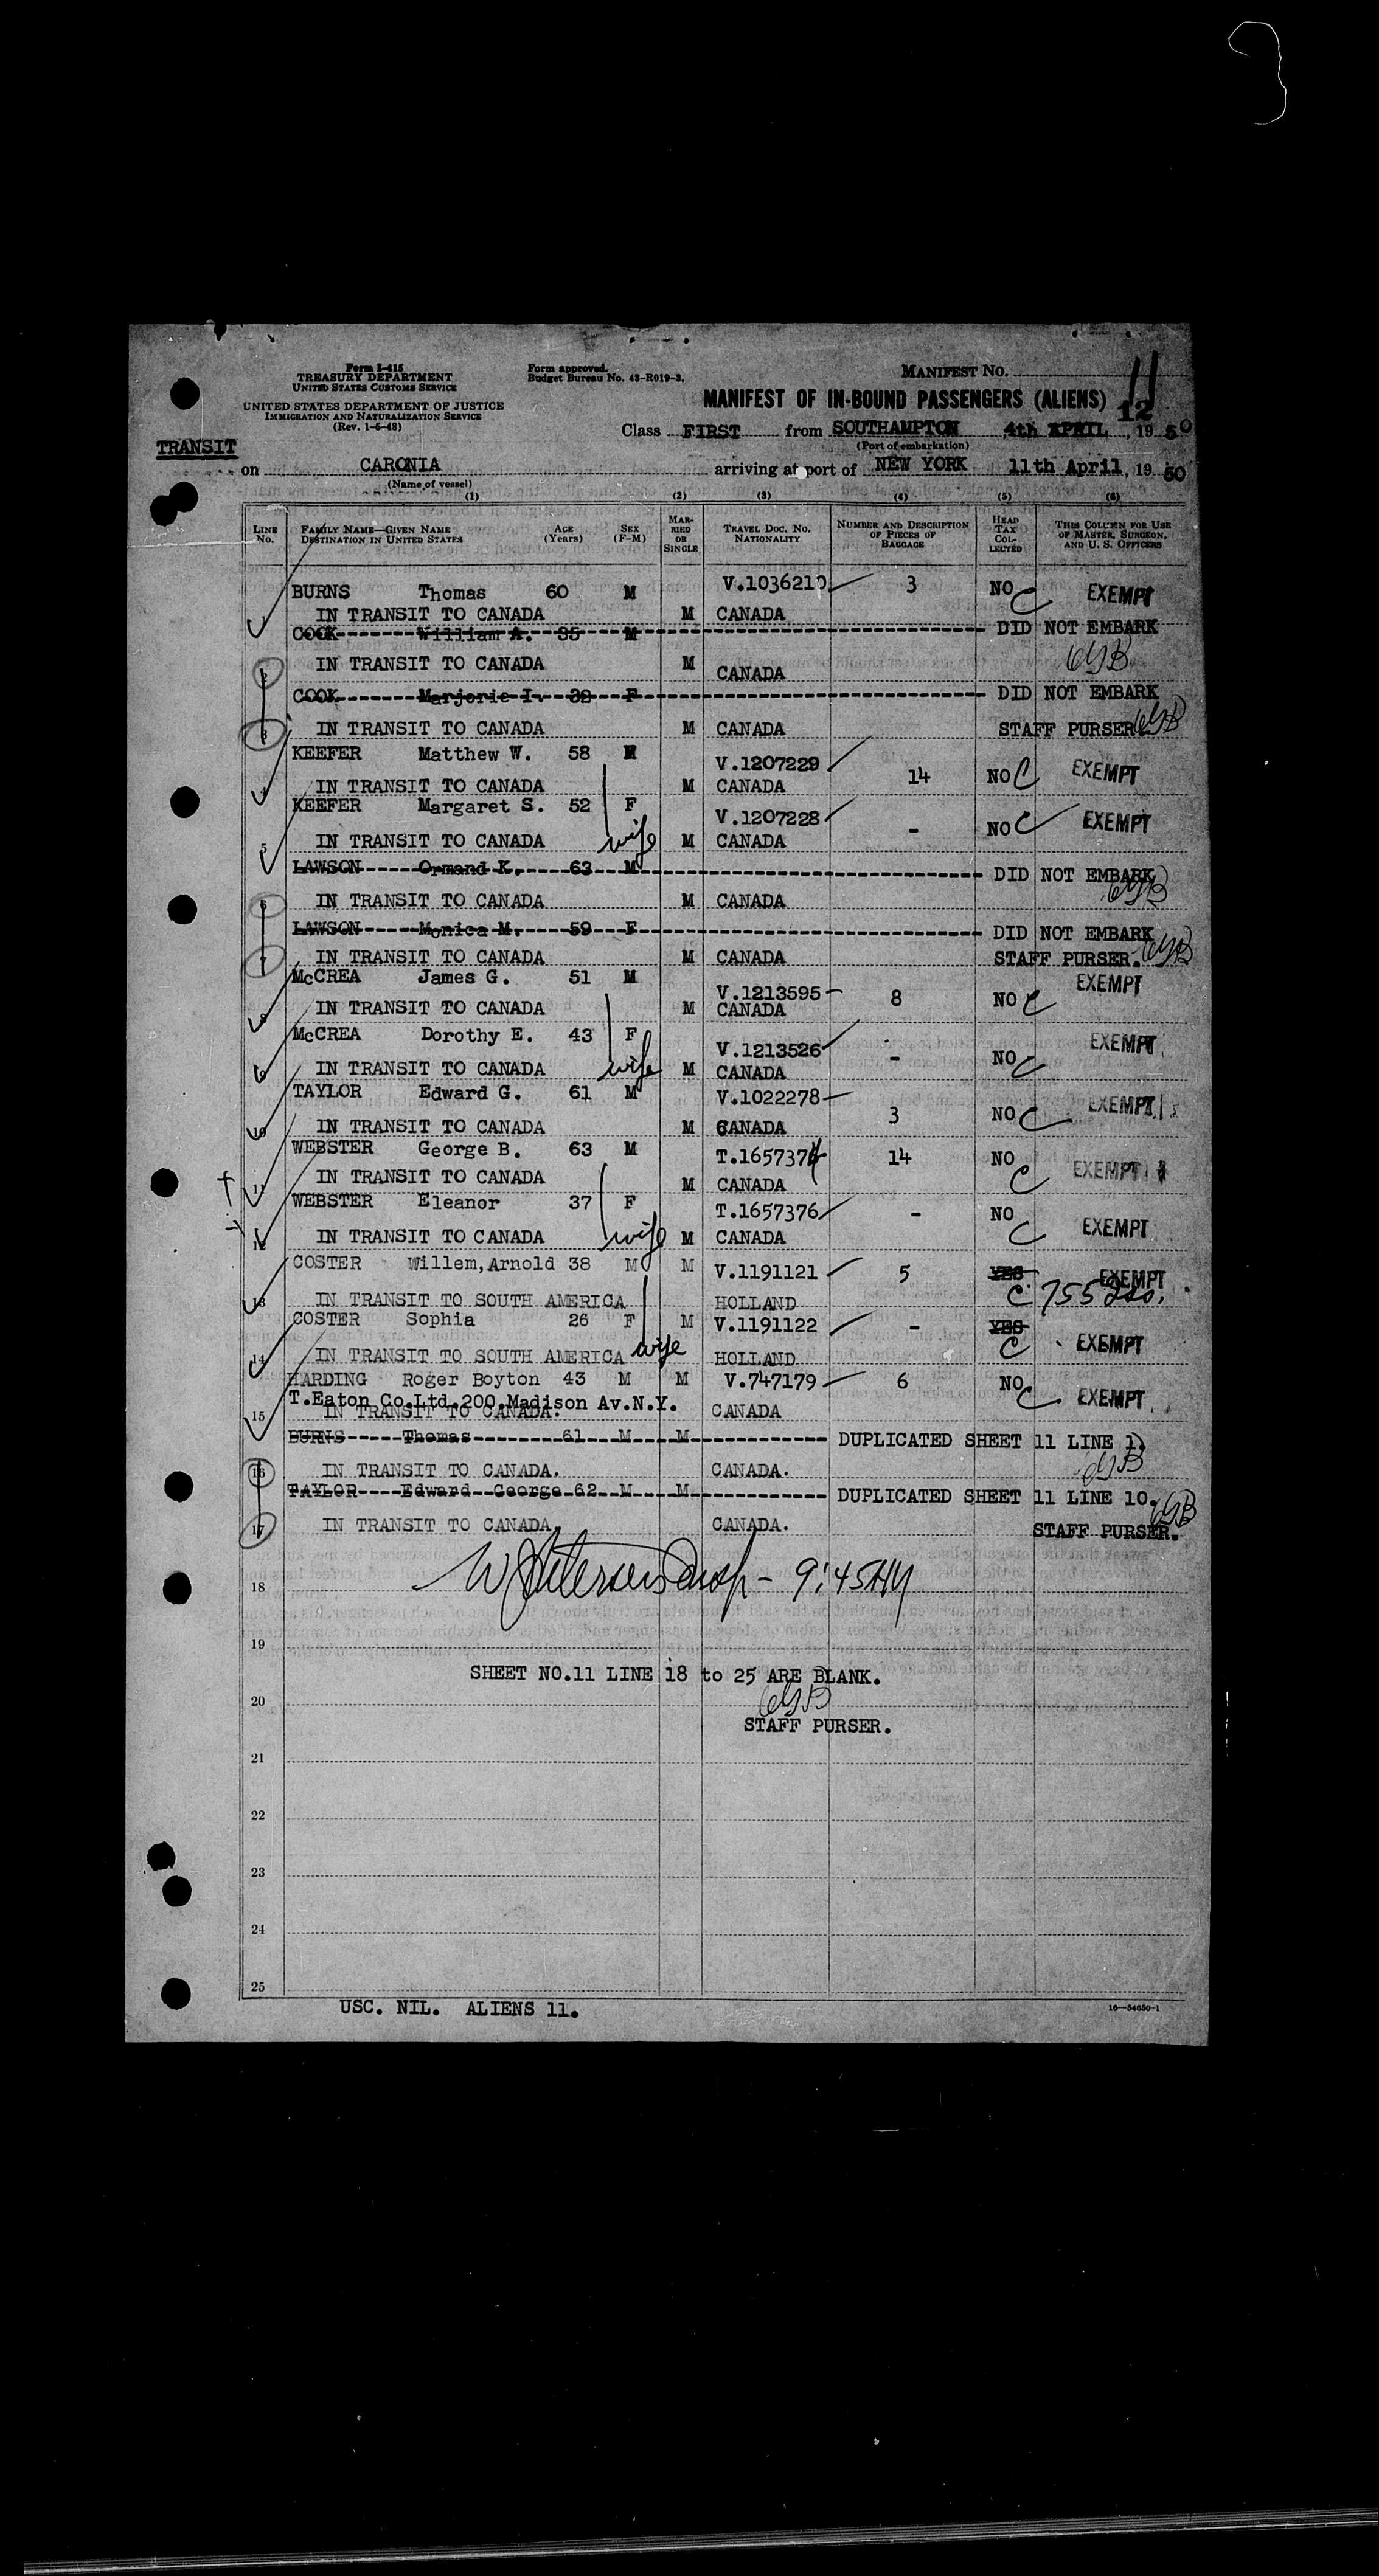 Form I-415
TREASURY DEPARTMENT
UNITED STATES CUSTOMS SERVICE
UNITED STATES DEPARTMENT OF JUSTICE
IMMIGRATION AND NATURALIZATION SERVICE
(Rev. 1-6-48)
Form approved.
Budget Bureau No. 43-R019-3.
MANIFEST No.
11
MANIFEST OF IN-BOUND PASSENGERS (ALIENS) 12
Class FIRST from SOUTHAMPTON 4th APRIL, 1950
(Port of embarkation)
TRANSIT
on CARONIA arriving at port of NEW YORK 11th April, 1950
(Name of vessel)
(1) (2) (3) (4) (5) (6)
LINE No. FAMILY NAME—GIVEN NAME DESTINATION IN UNITED STATES AGE (Years) SEX (F-M) MARRIED OR SINGLE TRAVEL DOC. NO. NATIONALITY NUMBER AND DESCRIPTION OF PIECES OF BAGGAGE HEAD TAX COLLECTED THIS COLUMN FOR USE OF MASTER, SURGEON, AND U. S. OFFICERS
BURNS Thomas 60 M V.1036210 3 NO C EXEMPT
1 IN TRANSIT TO CANADA M CANADA
COOK William A. 35 M DID NOT EMBARK
2 IN TRANSIT TO CANADA M CANADA
COOK Marjorie I. 32 F DID NOT EMBARK
3 IN TRANSIT TO CANADA M CANADA STAFF PURSER
KEEFER Matthew W. 58 M V.1207229 14 NO C EXEMPT
4 IN TRANSIT TO CANADA M CANADA
KEEFER Margaret S. 52 F V.1207228 - NO C EXEMPT
5 IN TRANSIT TO CANADA wife M CANADA
LAWSON Ormand K. 63 M DID NOT EMBARK
6 IN TRANSIT TO CANADA M CANADA
LAWSON Monica M. 59 F DID NOT EMBARK
7 IN TRANSIT TO CANADA M CANADA STAFF PURSER.
McCREA James G. 51 M V.1213595 8 NO C EXEMPT
8 IN TRANSIT TO CANADA M CANADA
McCREA Dorothy E. 43 F V.1213526 - NO C EXEMPT
9 IN TRANSIT TO CANADA wife M CANADA
TAYLOR Edward G. 61 M V.1022278 3 NO C EXEMPT
10 IN TRANSIT TO CANADA M CANADA
WEBSTER George B. 63 M T.1657374 14 NO C EXEMPT
11 IN TRANSIT TO CANADA M CANADA
WEBSTER Eleanor 37 F T.1657376 - NO C EXEMPT
12 IN TRANSIT TO CANADA wife M CANADA
COSTER Willem, Arnold 38 M M V.1191121 5 YES EXEMPT
13 IN TRANSIT TO SOUTH AMERICA HOLLAND C 755
COSTER Sophia 26 F M V.1191122 - YES C EXEMPT
14 IN TRANSIT TO SOUTH AMERICA wife HOLLAND
HARDING Roger Boyton 43 M M V.747179 6 NO C EXEMPT
T.Eaton Co.Ltd.200.Madison Av.N.Y.
15 IN TRANSIT TO CANADA. CANADA
BURNS Thomas 61 M M DUPLICATED SHEET 11 LINE 1.
16 IN TRANSIT TO CANADA. CANADA.
TAYLOR Edward George 62 M M DUPLICATED SHEET 11 LINE 10.
17 IN TRANSIT TO CANADA. CANADA. STAFF PURSER.
18
19
SHEET NO.11 LINE 18 to 25 ARE BLANK.
20
STAFF PURSER.
21
22
23
24
25
USC. NIL. ALIENS 11.
16—54650-1